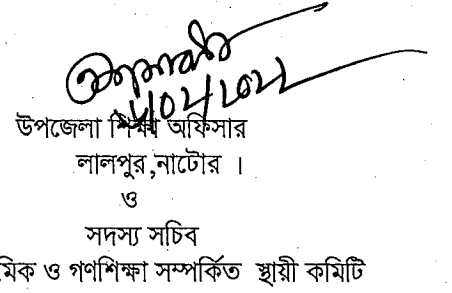 উপজেলা শিক্ষা অফিসার
লালপুর,নাটোর ।
ও
সদস্য সচিব
মিক ও গণশিক্ষা সম্পর্কিত স্থায়ী কমিটি